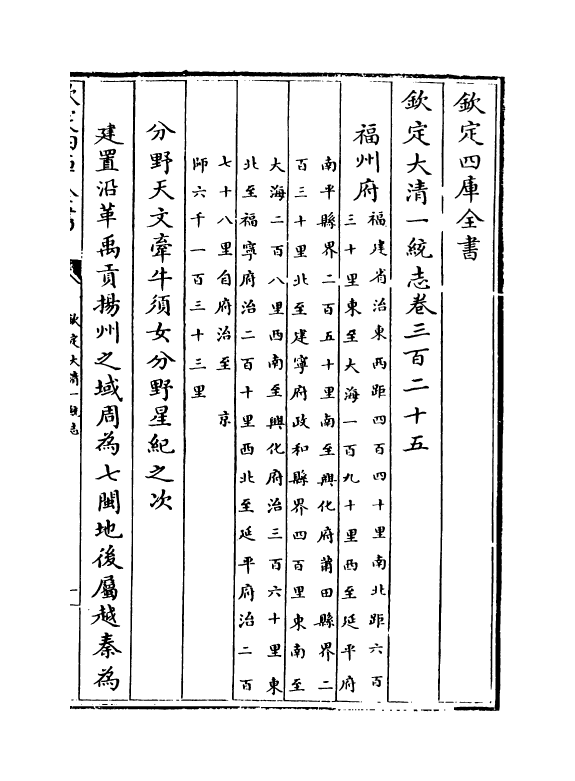 欽定四庫全書
欽定大清一統志卷三百二十五
福州府
福建省治東西距四百四十里南北距六百
三十里東至大海一百九十里西至延平府
南平縣界二百五十里南至興化府莆田縣界二
百三十里北至建寧府政和縣界四百里東南至
大海二百八里西南至興化府治三百六十里東
北至福寧府治二百十里西北至延平府治二百
七十八里自府治至 京
師六千一百三十三里
分野天文牽牛須女分野星紀之次
建置沿革禹貢揚州之域周為七閩地後屬越秦為
欽定大清一統志
一